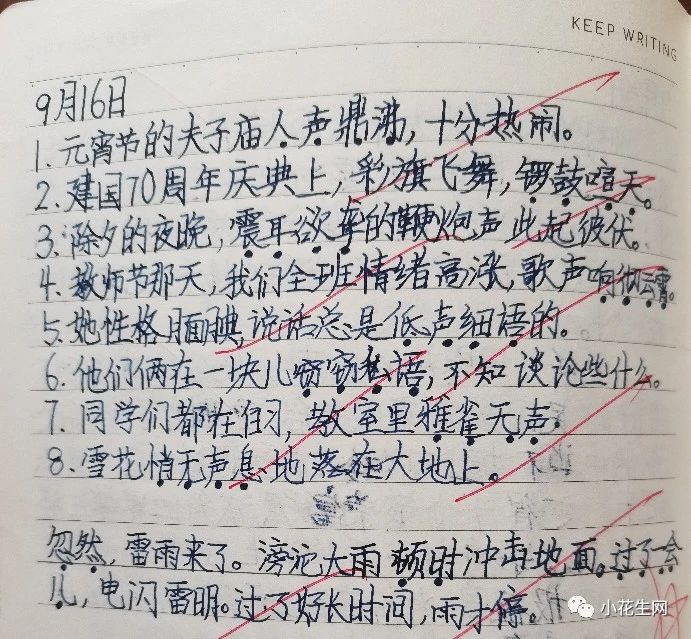 KEEP WRITING
9月16日
1. 元宵节的夫子庙人声鼎沸,十分热闹。
2. 建国70周年庆典上,彩旗飞舞,锣鼓喧天。
3. 除夕的夜晚,震耳欲聋的鞭炮声此起彼伏。
4. 教师节那天,我们全班情绪高涨,歌声响彻云霄。
5. 她性格腼腆,说话总是低声细语的。
6. 他们俩在一块儿窃窃私语,不知谈论些什么。
7. 同学们都在自习,教室里雅雀无声
8. 雪花悄无声息地落在大地上。
忽然,雷雨来了。滂沱大雨顿时冲击地面。过了一会
儿,电闪雷明。过了好长时间,雨才停。
小花生网